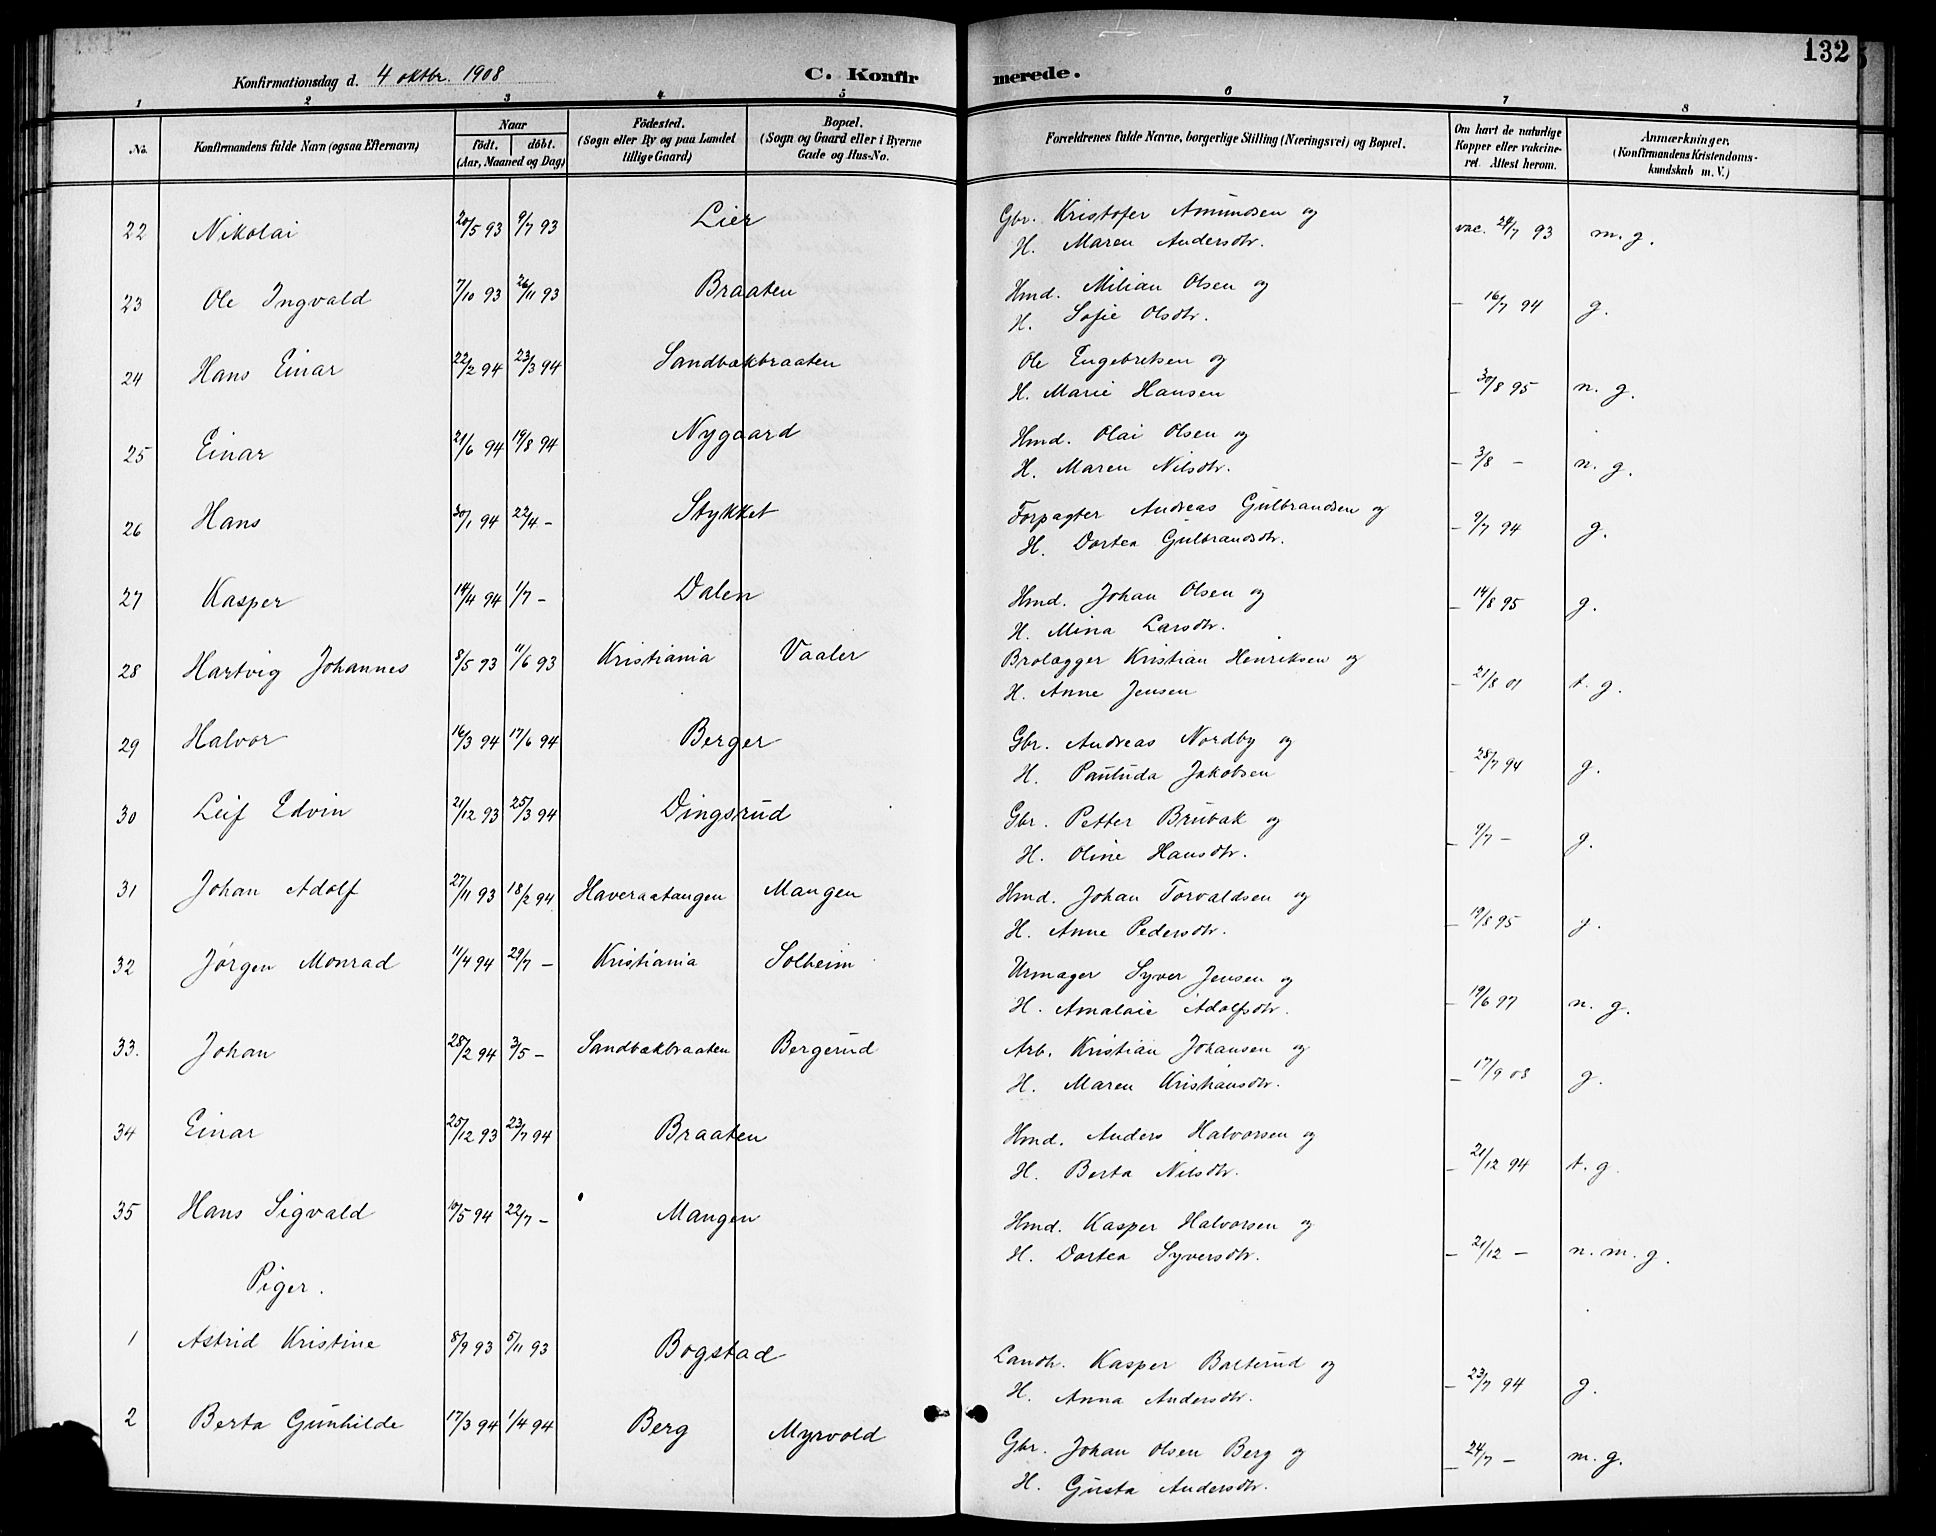 132
Konfirmationsdag d. 4 oktbr. 1908 C. Konfirmerede.
1 2 3 4 5 6 7 8
No. Konfirmandens fulde Navn (ogsaa Efternavn) Naar födt. döbt. (Aar, Maaned og Dag) Födested. (Sogn eller By og paa Landet tillige Gaard) Bopæl. (Sogn og Gaard eller i Byerne Gade og Hus-No. Forældrenes fulde Navne, borgerlige Stilling (Næringsvei) og Bopæl. Om havt de naturlige Kopper eller vakcineret. Attest herom. Anmærkninger. (Konfirmandens Kristendomskundskab m. V.)
22 Nikolai 20/5 93 9/7 93 Lier Gbr. Kristofer Amundsen og vac. 24/7 93 m. g.
H. Maren Andersdtr.
23 Ole Ingvald 7/10 93 26/11 93 Braaten Hmd. Milian Olsen og — 16/7 94 g.
H. Sofie Olsdtr.
24 Hans Einar 22/2 94 23/3 94 Sandbækbraaten Ole Engebretsen og — 30/8 95 n. g.
H. Marie Hansen
25 Einar 21/6 94 19/8 94 Nygaard Hmd. Olai Olsen og — 3/8 — n. g.
H. Maren Nilsdtr.
26 Hans 30/1 94 22/4 — Stykket Forpagter Andreas Gulbrandsen og — 9/7 94 g.
H. Dortea Gulbrandsdtr.
27 Kasper 14/4 94 1/7 — Dalen Hmd. Johan Olsen og — 14/8 95 g.
H. Mina Larsdtr.
28 Hartvig Johannes 8/5 93 11/6 93 Kristiania Vaaler Brolægger Kristian Henriksen og — 21/8 01 t. g.
H. Anne Jensen
29 Halvor 16/3 94 17/6 94 Berger Gbr. Andreas Nordby og — 28/7 94 g.
H. Pauluda Jakobsen
30 Leif Edvin 21/12 93 25/3 94 Dingsrud Gbr. Petter Brubak og — 9/7 — g.
H. Oline Hansdtr.
31 Johan Adolf 27/11 93 18/2 94 Haveraatangen Mangen Hmd. Johan Torvaldsen og — 19/8 95 g.
H. Anne Pedersdtr.
32 Jørgen Monrad 11/4 94 29/7 — Kristiania Solheim Urmager Syver Jensen og — 19/6 97 n. g.
H. Amalaie Adolfsdtr.
33. Johan 28/2 94 3/5 — Sandbækbraaten Bergerud Arb. Kristian Johansen og — 17/9 08 g.
H. Maren Kristiansdtr.
34 Einar 25/12 93 23/7 94 Braaten Hmd. Anders Halvorsen og — 21/12 94 t. g.
H. Berta Nilsdtr.
35 Hans Sigvald 10/5 94 22/7 — Mangen Hmd. Kasper Halvorsen og — 21/12 — n. m. g.
H. Dortea Syversdtr.
Piger.
1 Astrid Kristine 8/9 93 5/11 93 Bogstad Landh. Kasper Balterud og — 23/7 94 g.
H. Anna Andersdtr.
2 Berta Gunhilde 17/3 94 1/4 94 Berg Myrvold Gbr. Johan Olsen Berg og — 24/7 — m. g.
H. Gusta Andersdtr.